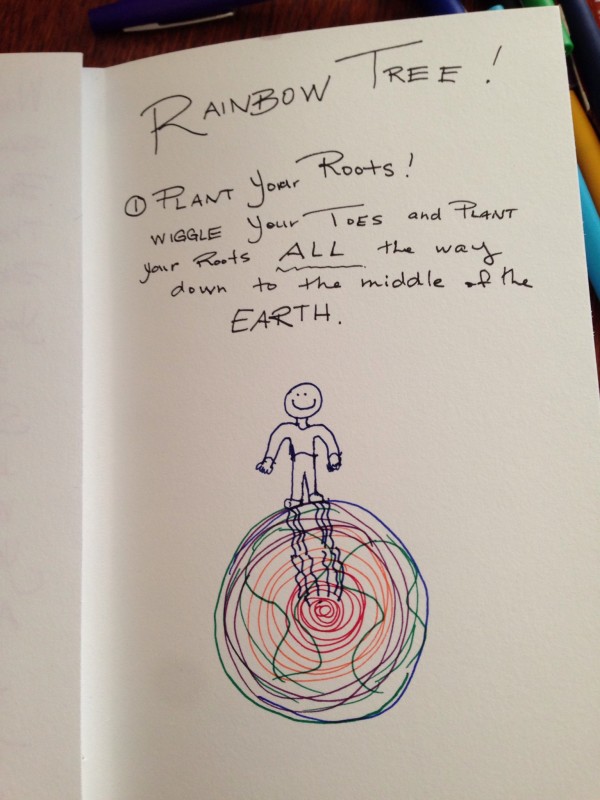 RAINBOW TREE!
① PLANT your Roots!
WIGGLE your TOES and PLANT
your Roots ALL the way
down to the middle of the
EARTH.